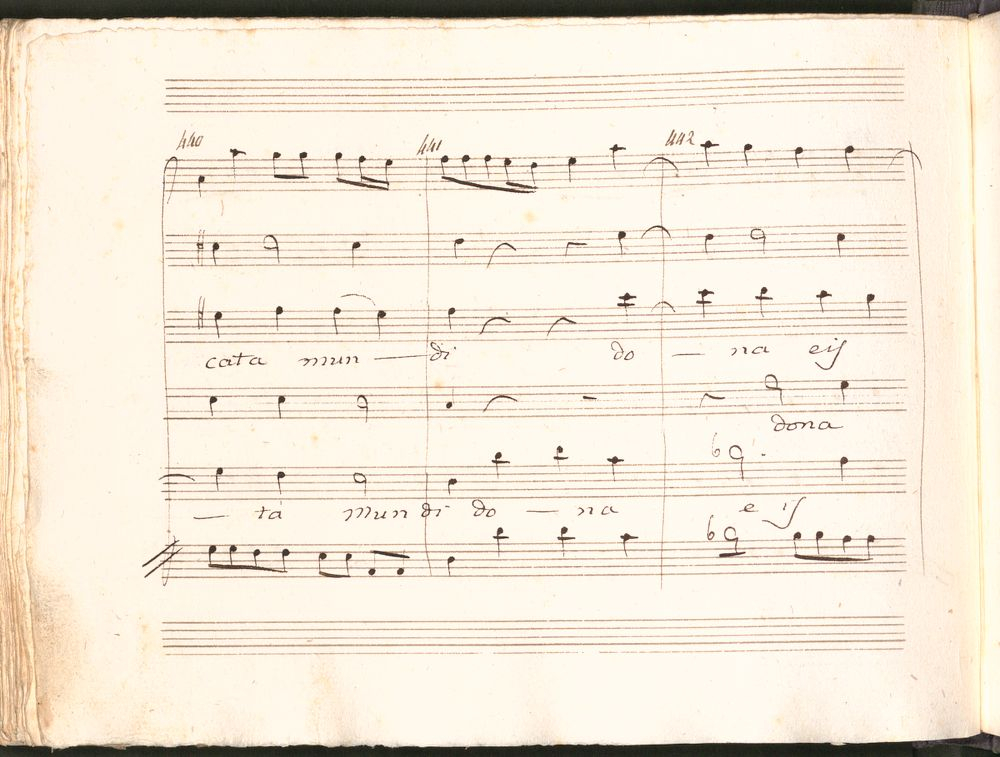 440 441 442
cata mun — di do — na eis
dona
— ta mun di do — na e is